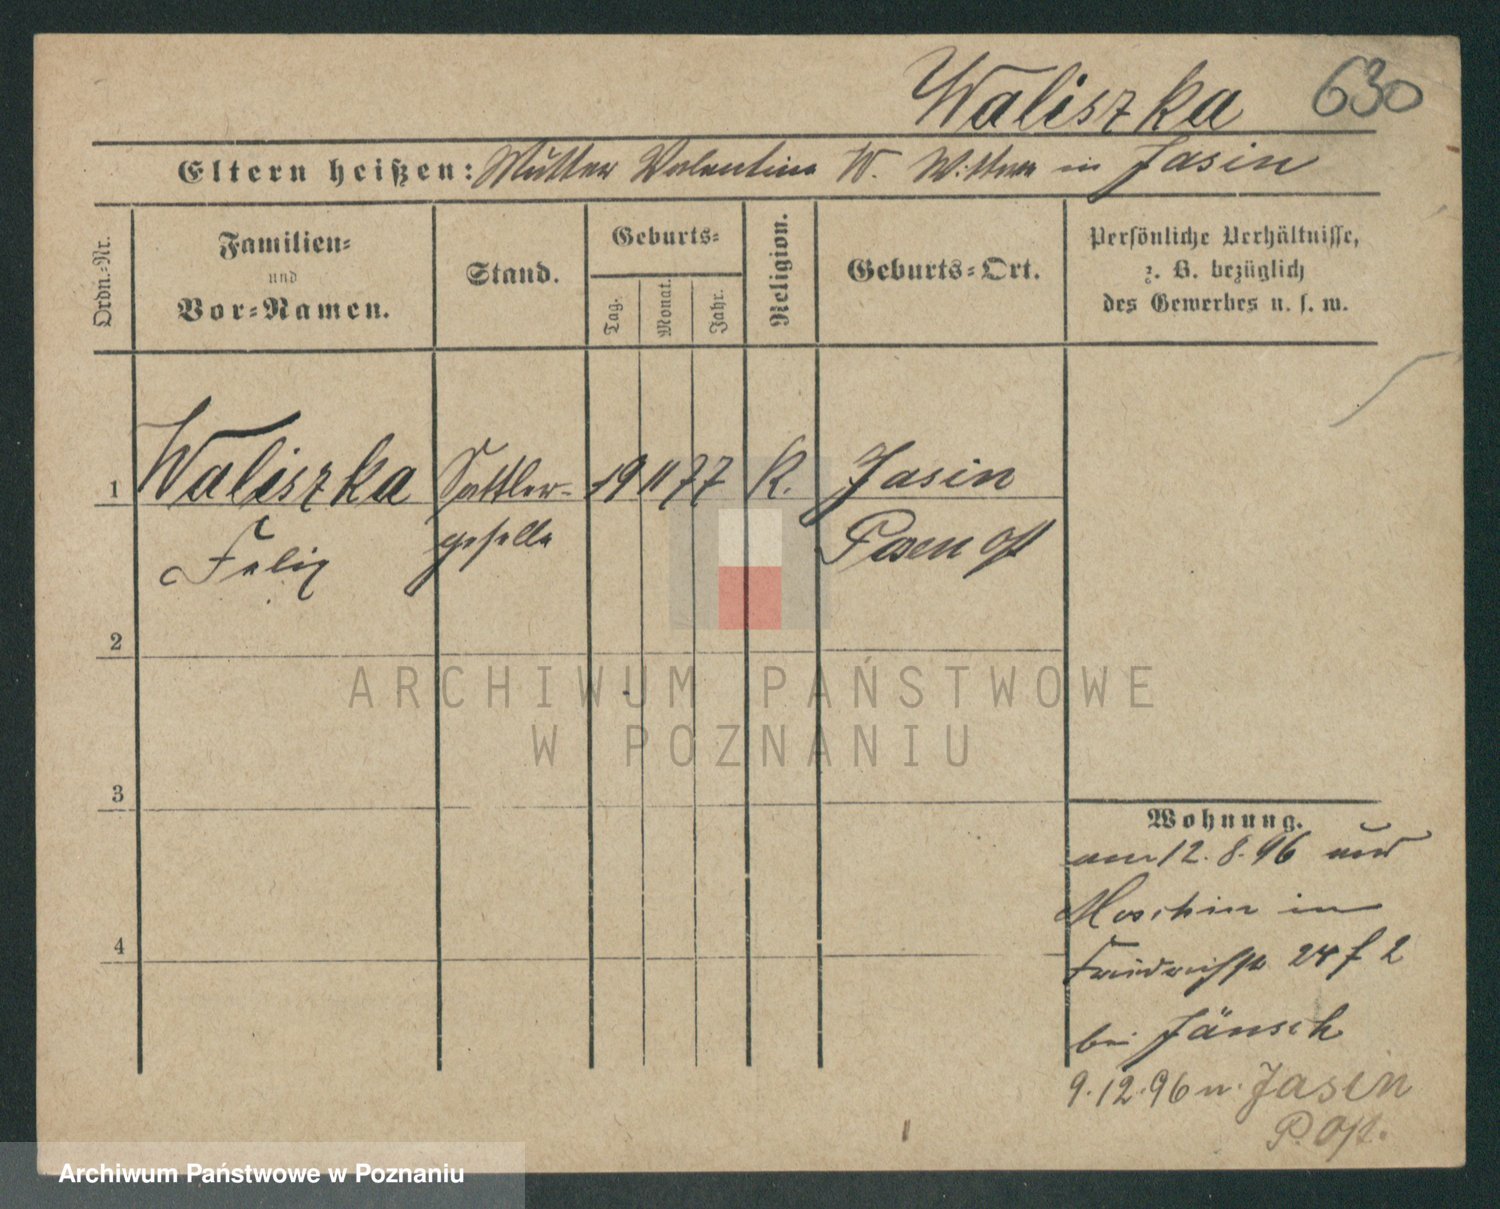 Waliszka 630
Eltern heißen: Mutter Valentina W. Wittwe in Jasin
Ordn.-Nr.
Familien-
und
Vor-Namen.
Stand.
Geburts-
Tag.
Monat.
Jahr.
Religion.
Geburts-Ort.
Persönliche Verhältnisse,
z. B. bezüglich
des Gewerbes u. s. w.
1 Waliszka Sattler- 19 11 77 K. Jasin
Felix geselle Posen Ost
2
3
4
Wohnung.
am 12. 8. 96 aus
Moschin in
Friedrichstr 24 f 2
bei Jänsch
9.12.96 n. Jasin
P. Ost.
ARCHIWUM PAŃSTWOWE
W POZNANIU
Archiwum Państwowe w Poznaniu